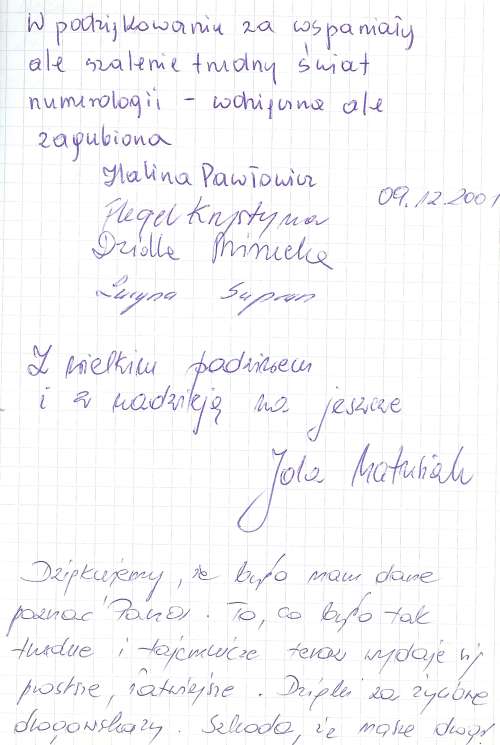 W podziękowaniu za wspaniały
ale szalenie trudny świat
numerologii - wdzięczna ale
zagubiona
Halina Pawłowicz
09.12.2001
Hegel Krystyna
Lucyna Supron
Z wielkim podziwem
i z nadzieją na jeszcze
Jola Matusiak
Dziękujemy, że było nam dane
poznać Pana. To, co było tak
trudne i tajemnicze teraz wydaje się
prostsze, łatwiejsze. Dzięki za życiowe
drogowskazy. Szkoda, że nasze drogi